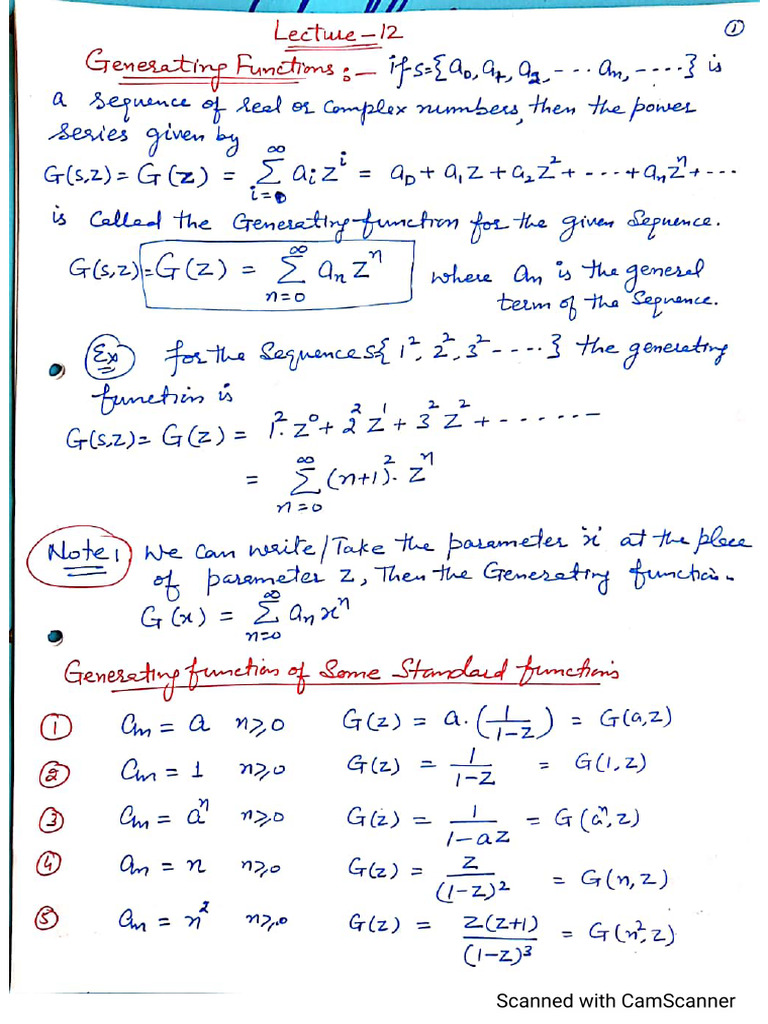 Lecture-12
①
Generating Functions :- if s={a₀, a₁, a₂, --- aₙ, ----} is
a sequence of real or complex numbers, then the power
series given by
G(s,z) = G(z) = ∑_{i=0}^{∞} aᵢ zⁱ = a₀ + a₁z + a₂z² + ---- + aₙzⁿ + ---
is called the Generating-function for the given Sequence.
G(s,z) = G(z) = ∑_{n=0}^{∞} aₙ zⁿ where aₙ is the general
term of the Sequence.
Ex for the Sequence s{ 1², 2², 3² ----} the generating
function is
G(s,z) = G(z) = 1².z⁰ + 2² z¹ + 3² z² + -------
= ∑_{n=0}^{∞} (n+1)². zⁿ
Note: We can write/Take the parameter 'x' at the place
of parameter z, Then the Generating function.
G(x) = ∑_{n=0}^{∞} aₙ xⁿ
Generating function of Some Standard functions
① aₙ = a n≥0 G(z) = a.(1/(1-z)) = G(a,z)
② aₙ = 1 n≥0 G(z) = 1/(1-z) = G(1,z)
③ aₙ = aⁿ n≥0 G(z) = 1/(1-az) = G(aⁿ,z)
④ aₙ = n n≥0 G(z) = z/(1-z)² = G(n,z)
⑤ aₙ = n² n≥0 G(z) = z(z+1)/(1-z)³ = G(n²,z)
Scanned with CamScanner